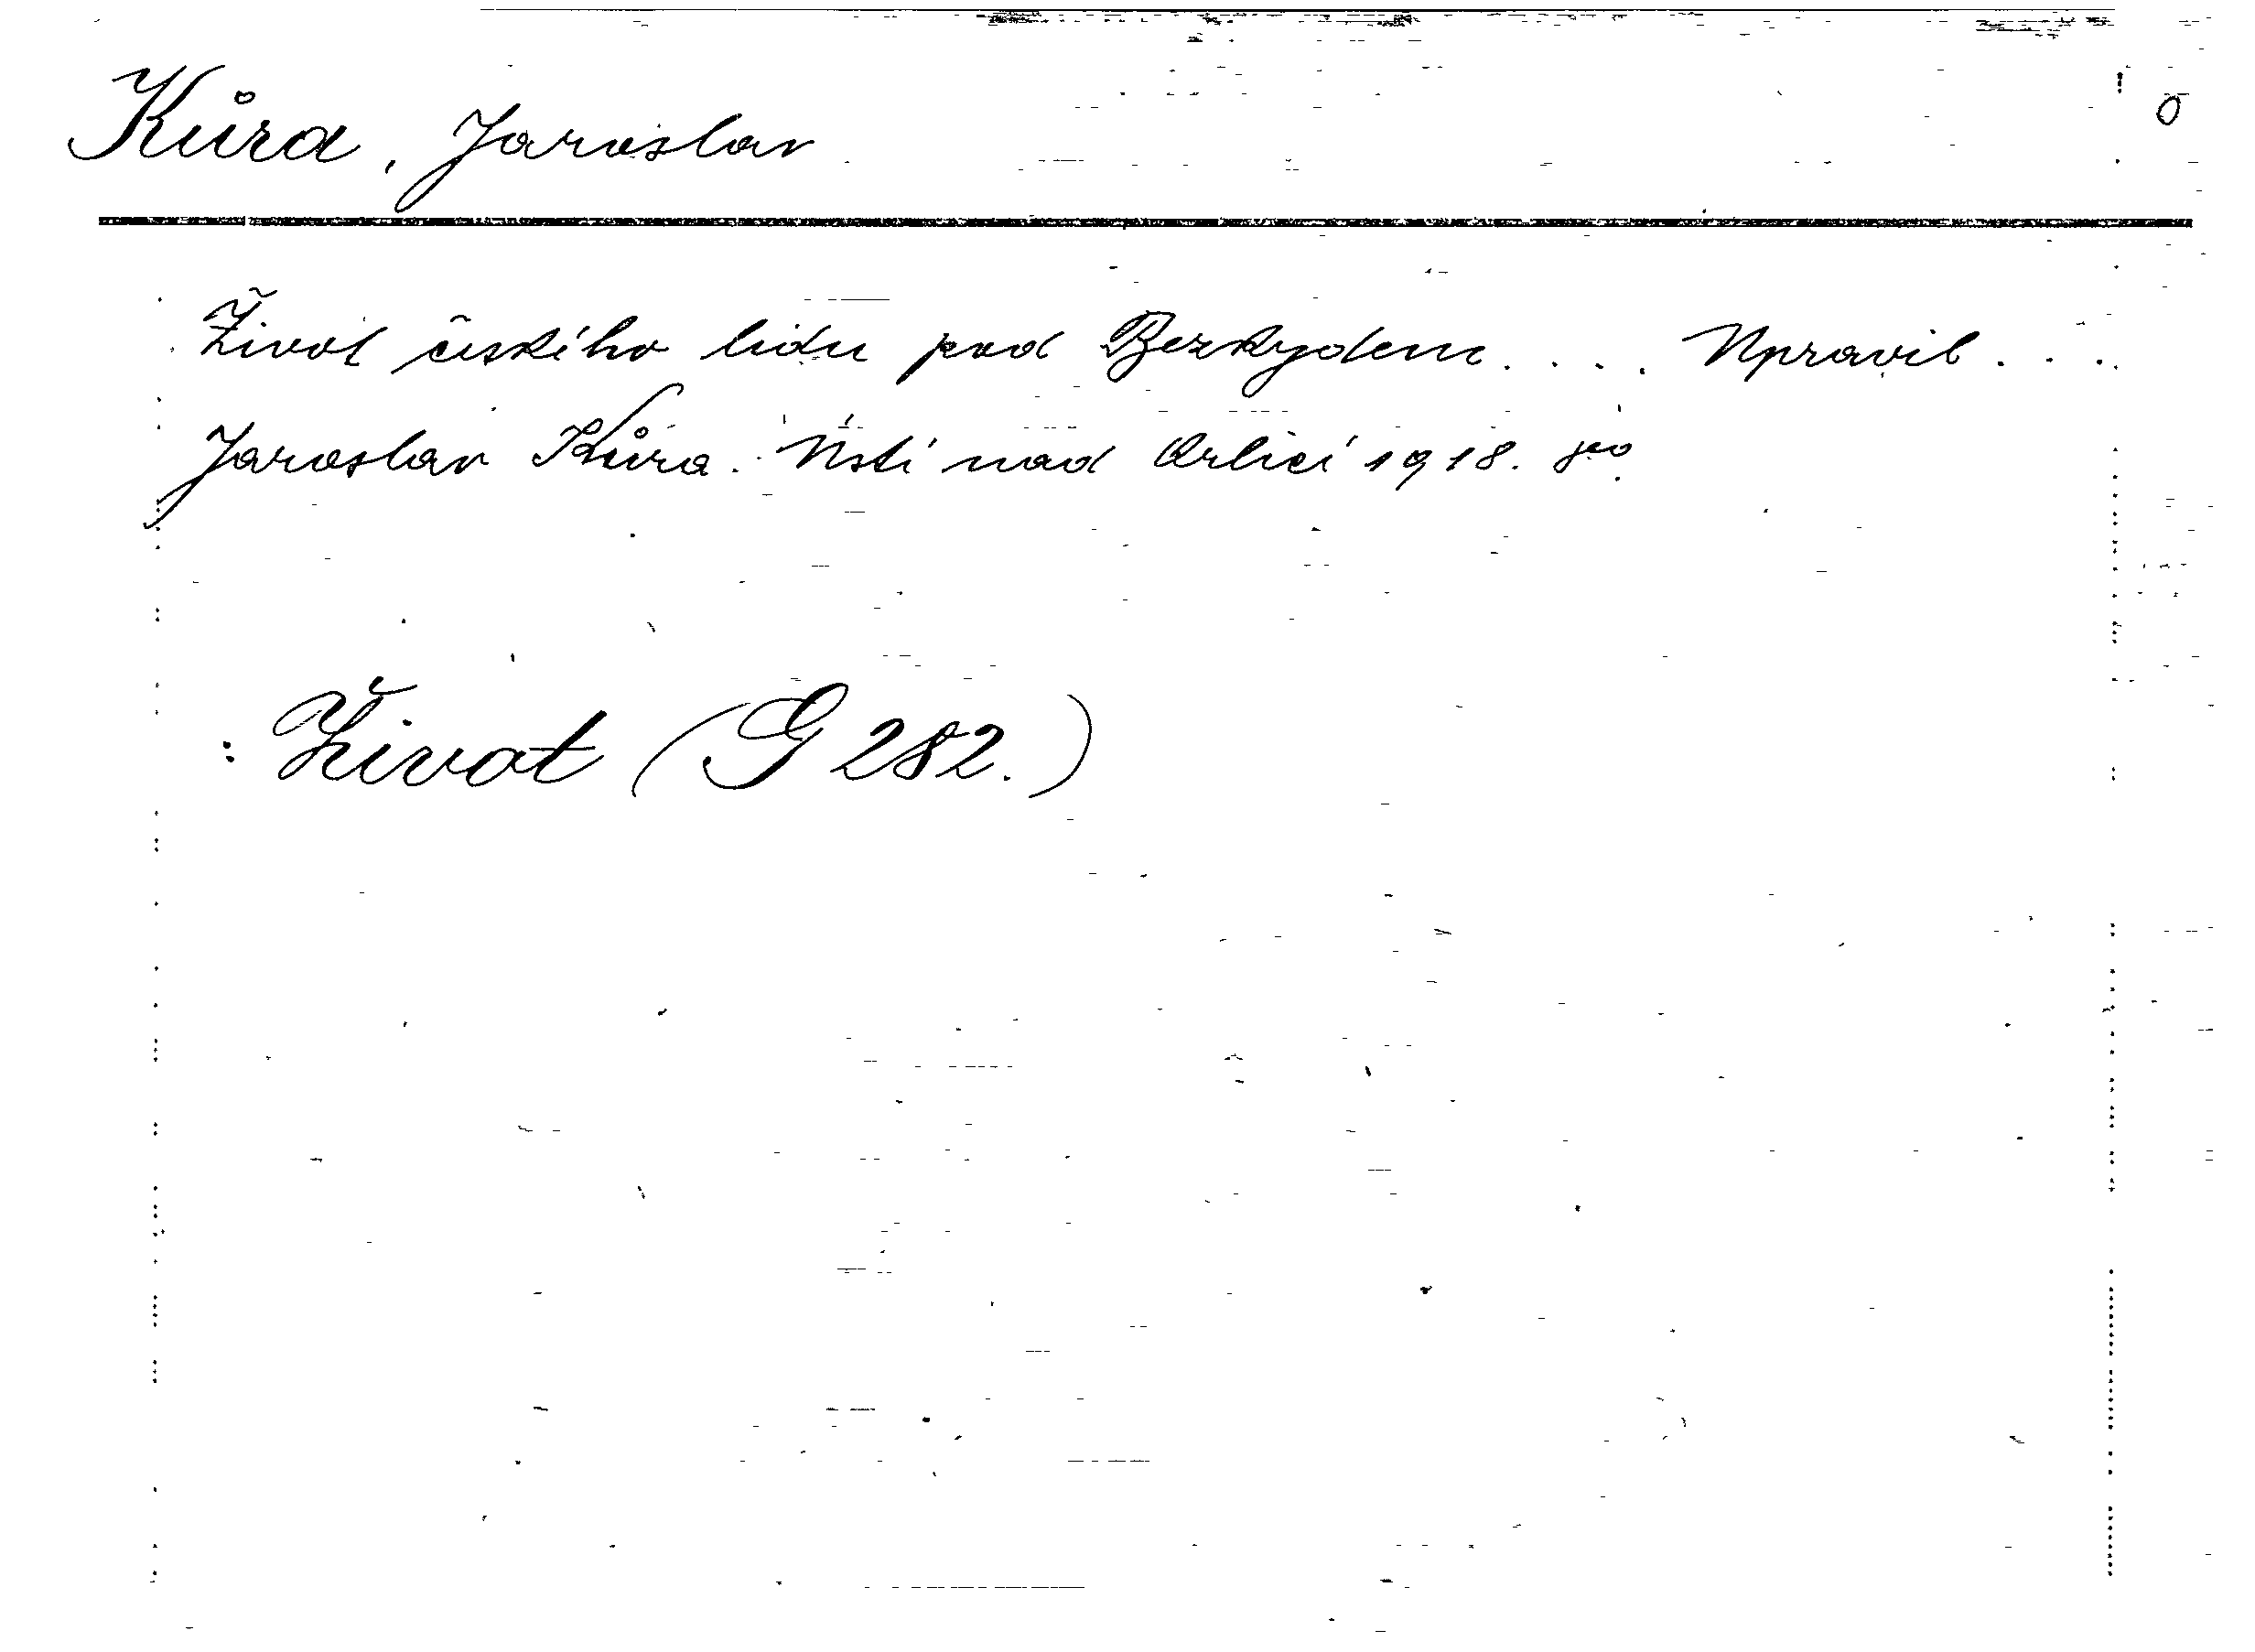 Kůra, Jaroslav
0
Život českého lidu pod Bezkydem.... Upravil...
Jaroslav Kůra. Ústí nad Orlicí 1918. 8°.
: Život (G 282.)